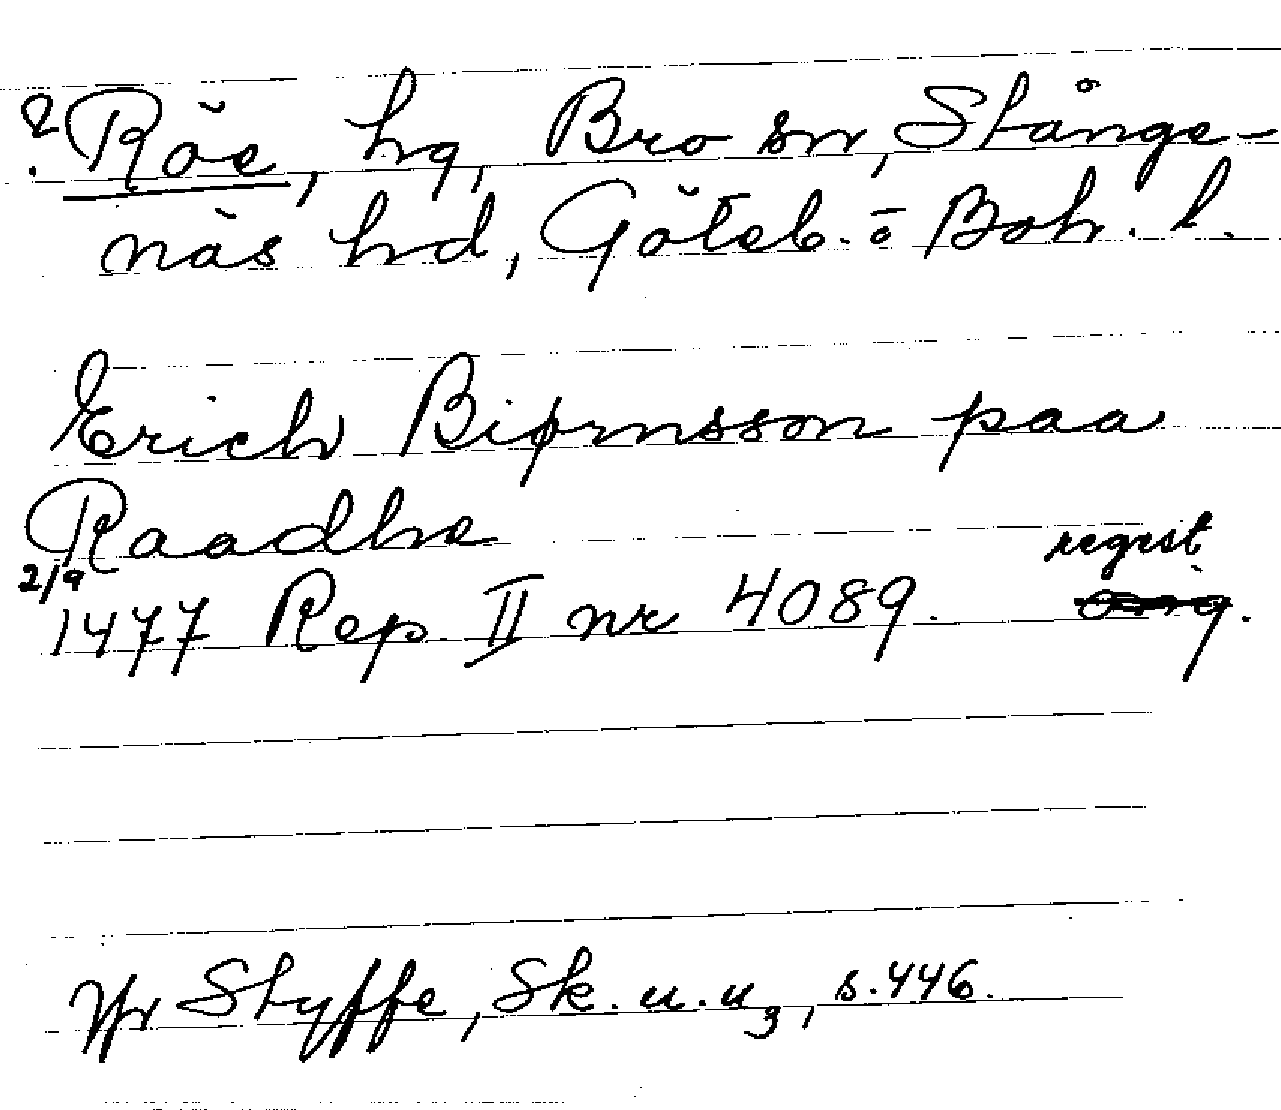 ? Röe, hg, Bro sn, Stånge-
näs hd, Göteb. o Boh. l.
Erich Biørnsson paa
Raadhe
regest
2/9
1477 Rep II nr 4089. orig.
Jfr Styffe, Sk. u. u3, s. 446.